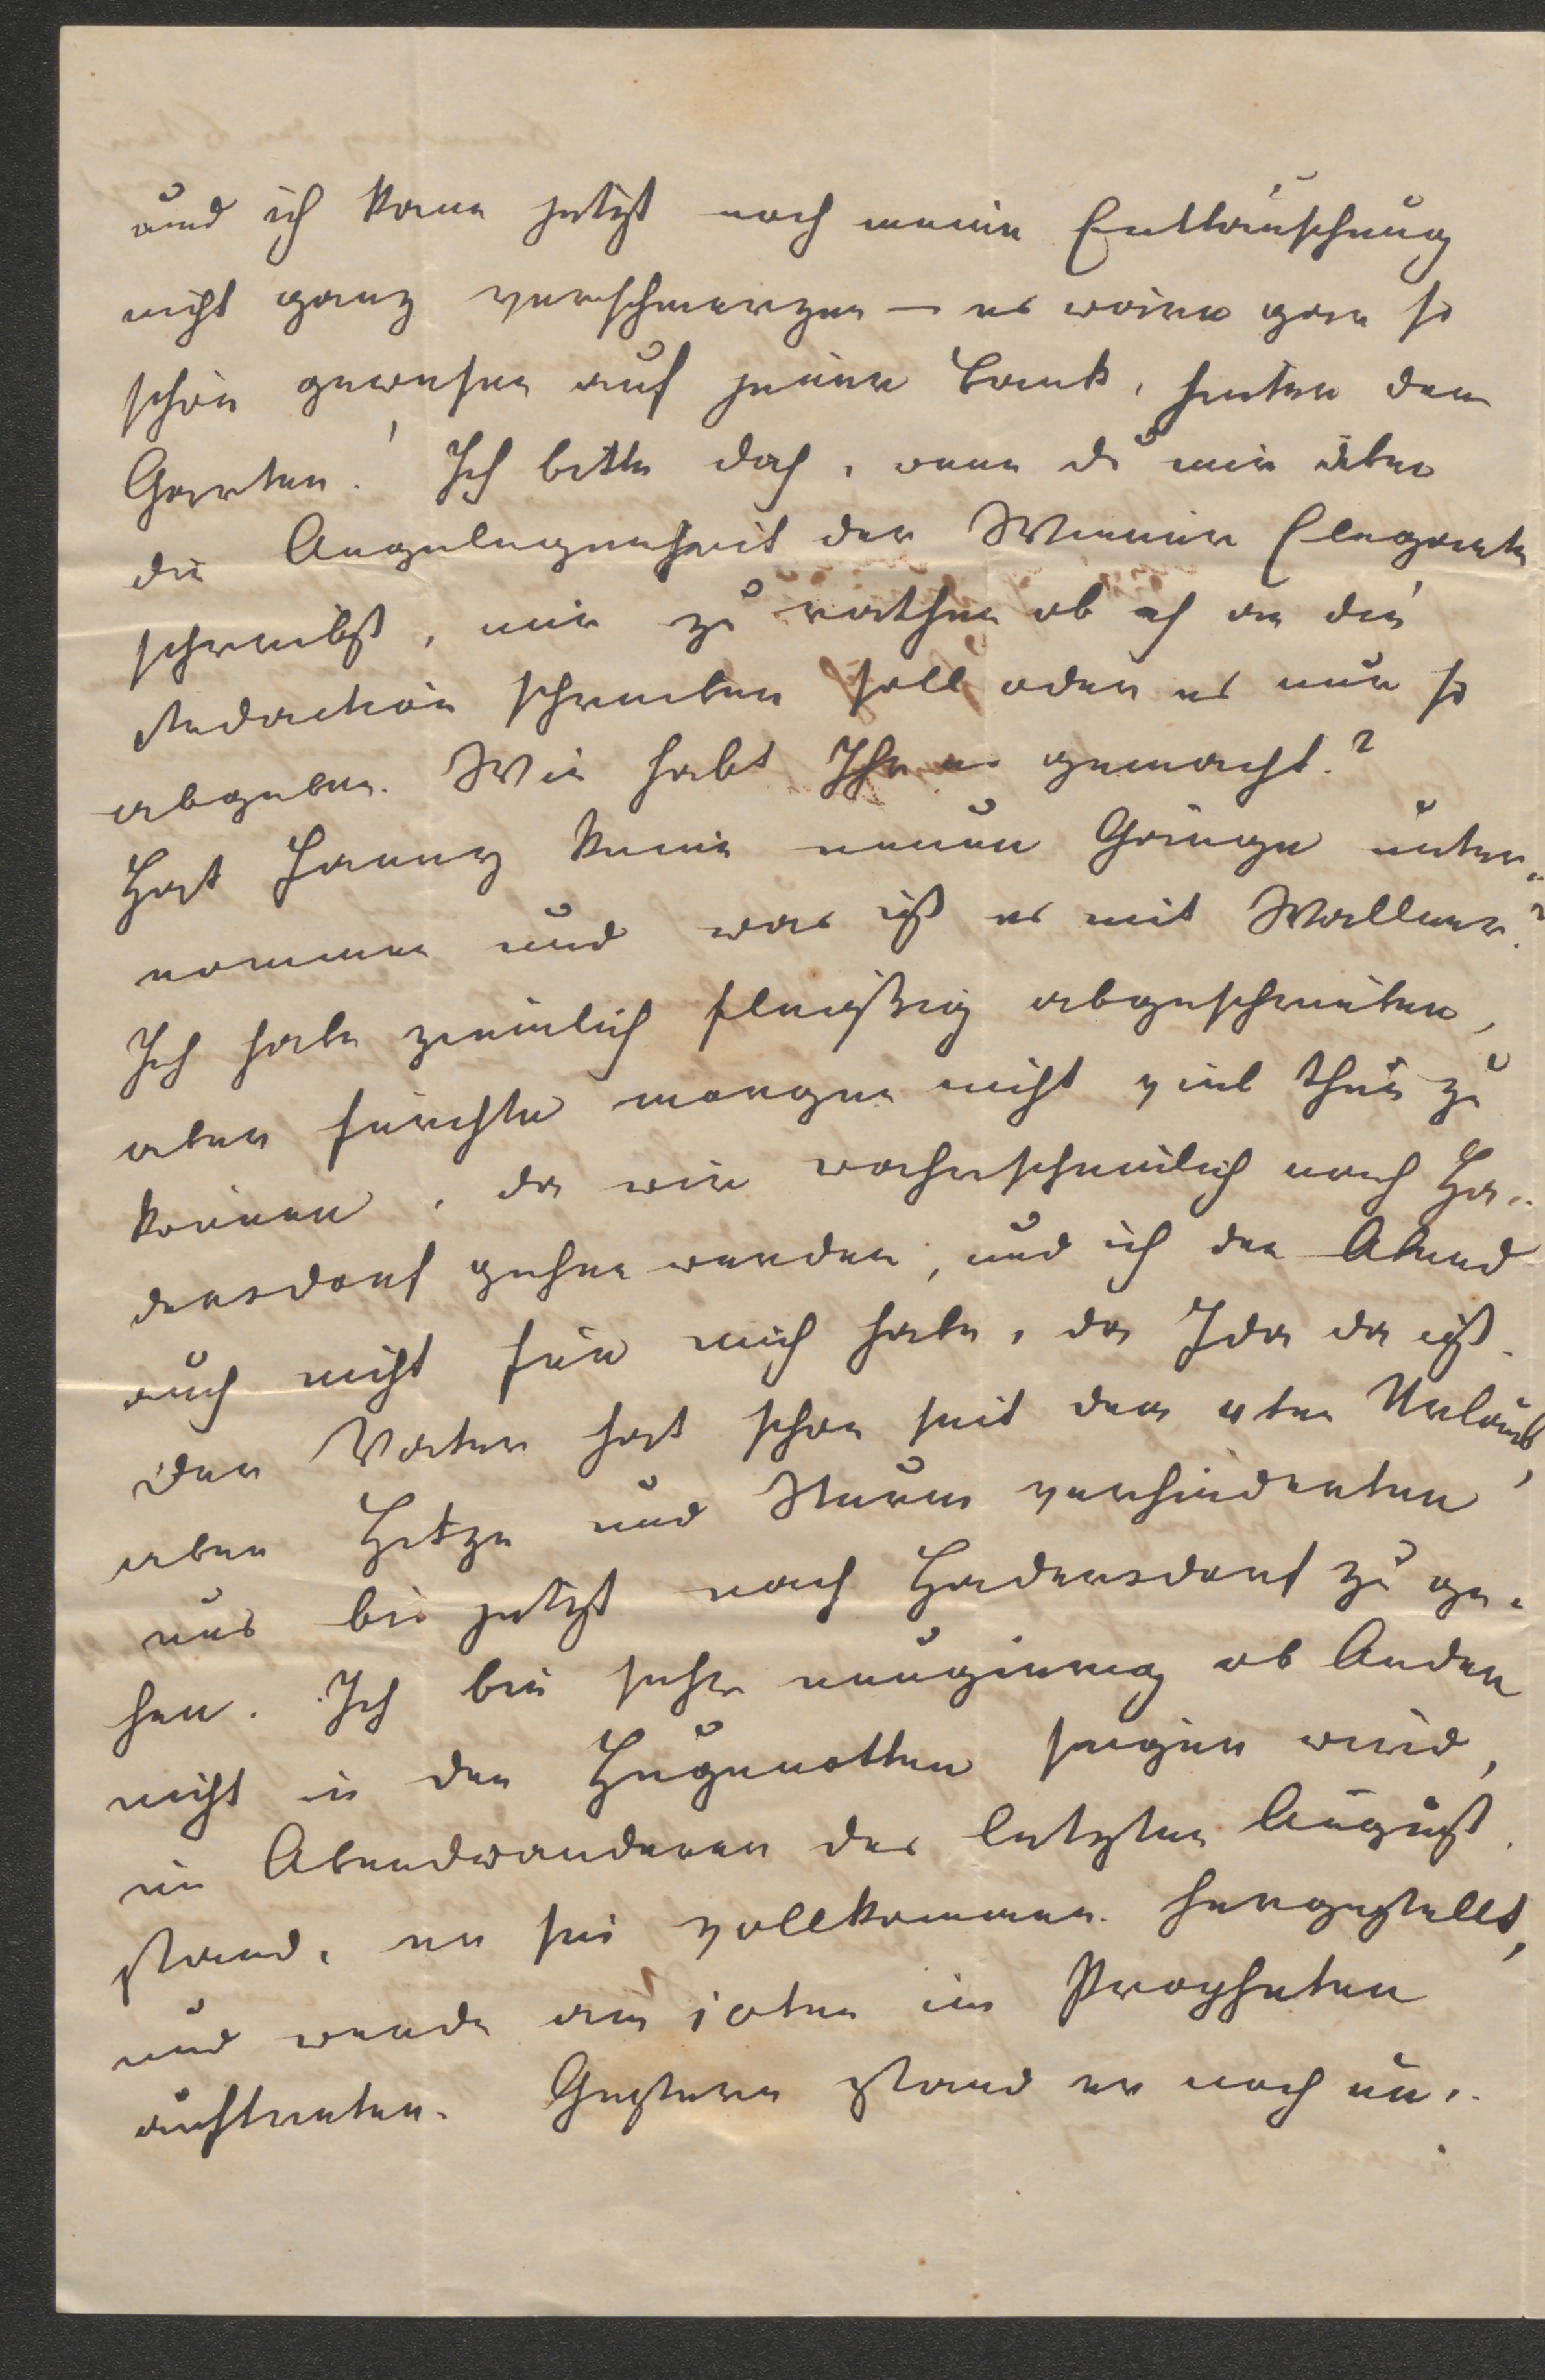 und ich kann jetzt noch meine Enttäuschung
nicht ganz verschmerzen – es wäre gar so
schön gewesen auf jener Bank, hinter dem
Garten! Ich bitte dich, wenn du mir über
die Angelegenheit der Wiener Elegante
schreibst, mir zu rathen ob ich an die
Redaction schreiben soll oder es nur so
abgeben. Wie habt Ihr es gemacht?
Hat Fanny keine neuen Gänge unter-
nommen und was ist es mit Wallner?
Ich habe ziemlich fleißig abgeschrieben,
aber fürchte morgen nicht viel thun zu
können, da wir wahrscheinlich nach Ha-
dersdorf gehen werden, und ich den Abend
auch nicht für mich habe, da Ida da ist.
Der Vater hat schon seit dem 4ten Urlaub,
aber Hitze und Sturm verhinderten
uns bis jetzt nach Hadersdorf zu ge-
hen. Ich bin sehr neugierig ob Ander
nicht in den Hugenotten singen wird,
im Abendwanderer des letzten August
stand, er sei vollkommen hergestellt,
und werde am 10ten im Propheten
auftreten. Gestern stand er noch un-